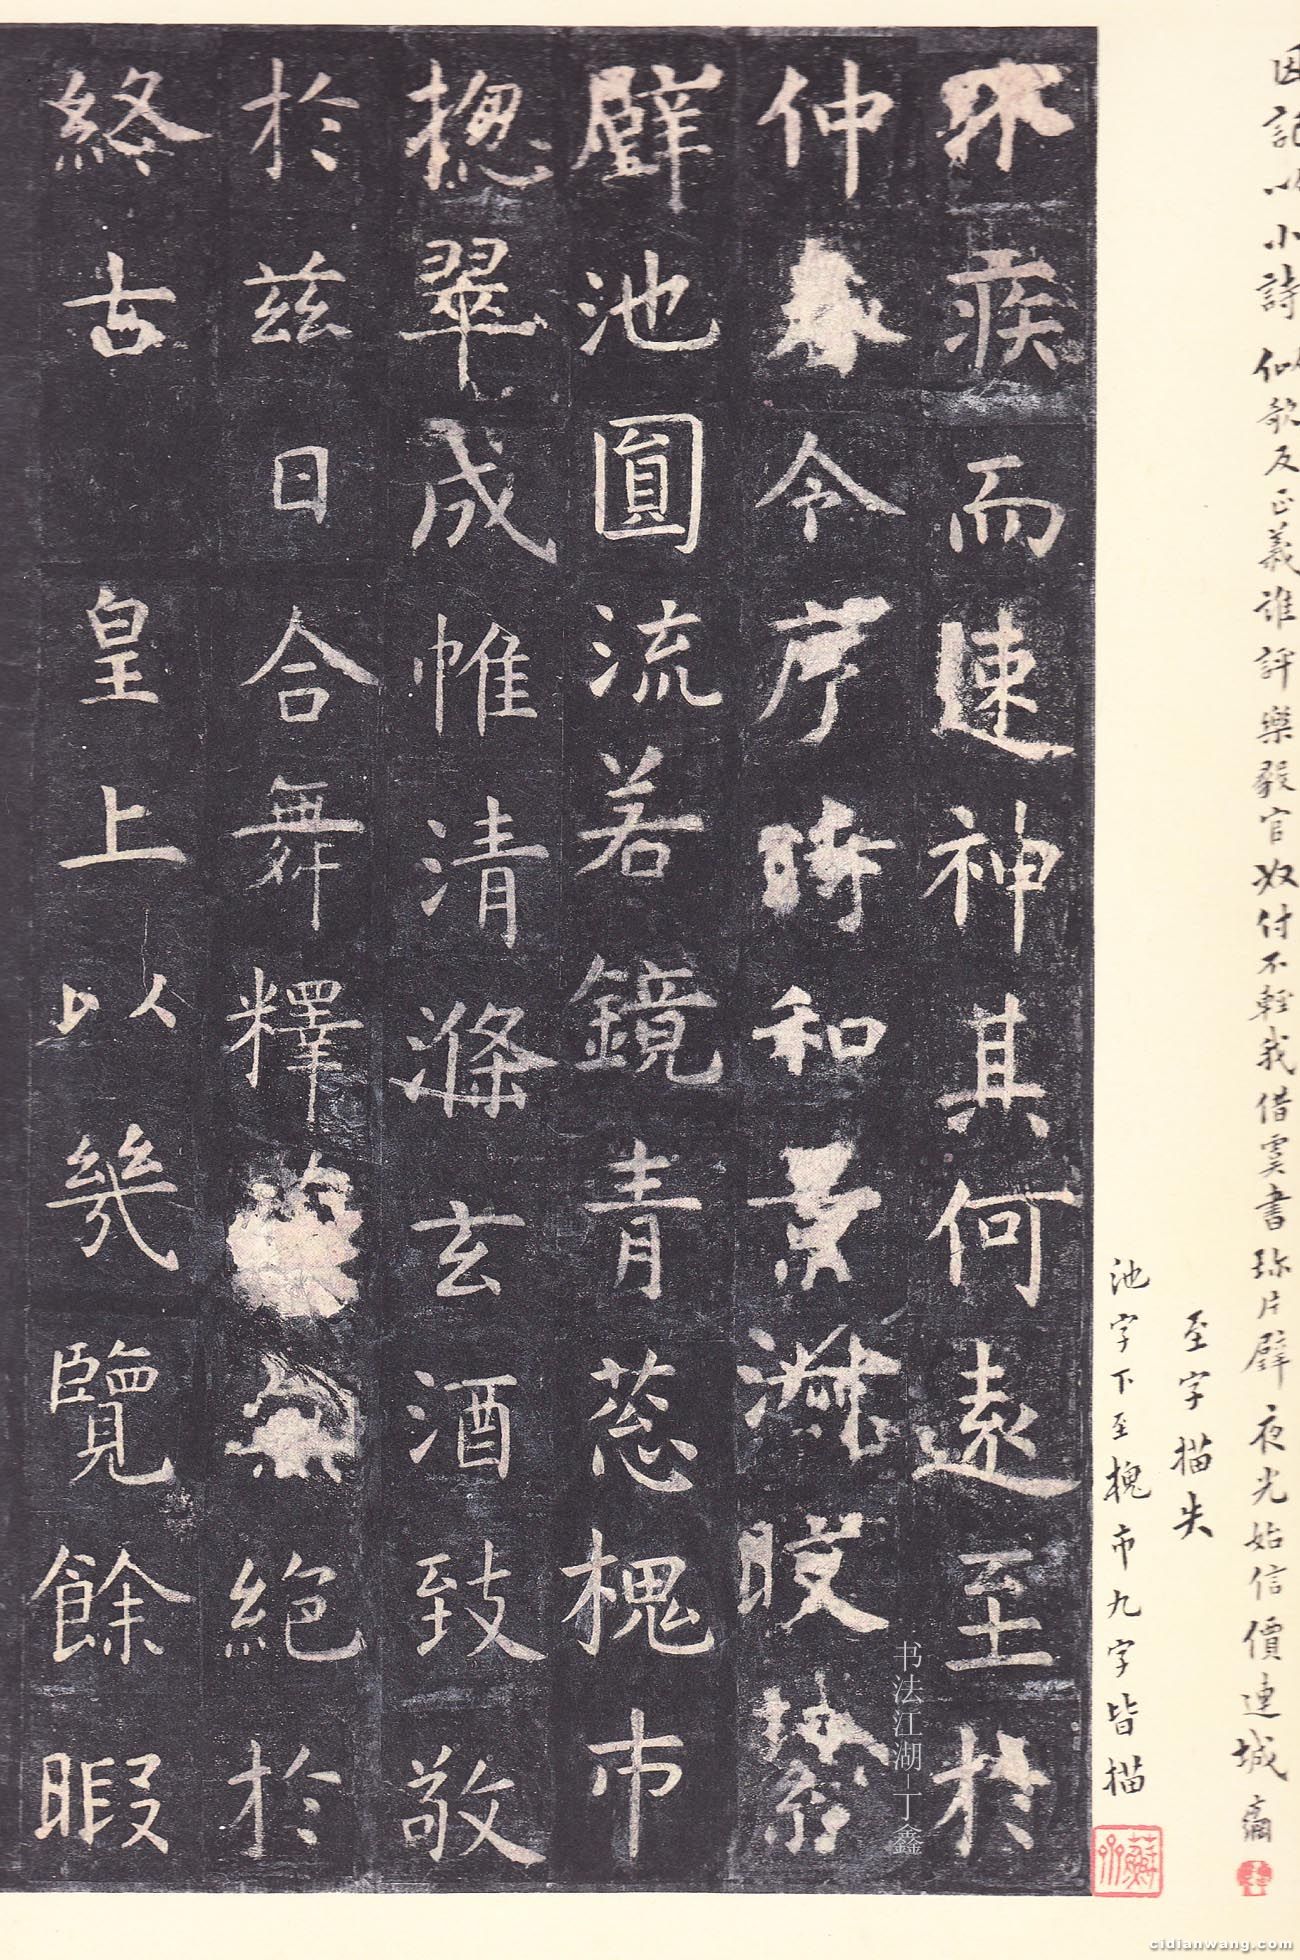 因記以小詩似歌反正義誰評樂毅官奴付不輕我借虞書珎片璧夜光始信價連城
至字描失
池字下至槐市九字皆描
不疾而速神其何遠至於
仲春令序時和景淑
璧池圓流若鏡青葱槐市
揔翠成帷清滌玄酒致敬
於兹日合舞釋菜無絕於
終古 皇上以幾覽餘暇
书法江湖－丁鑫
cidianwang.com